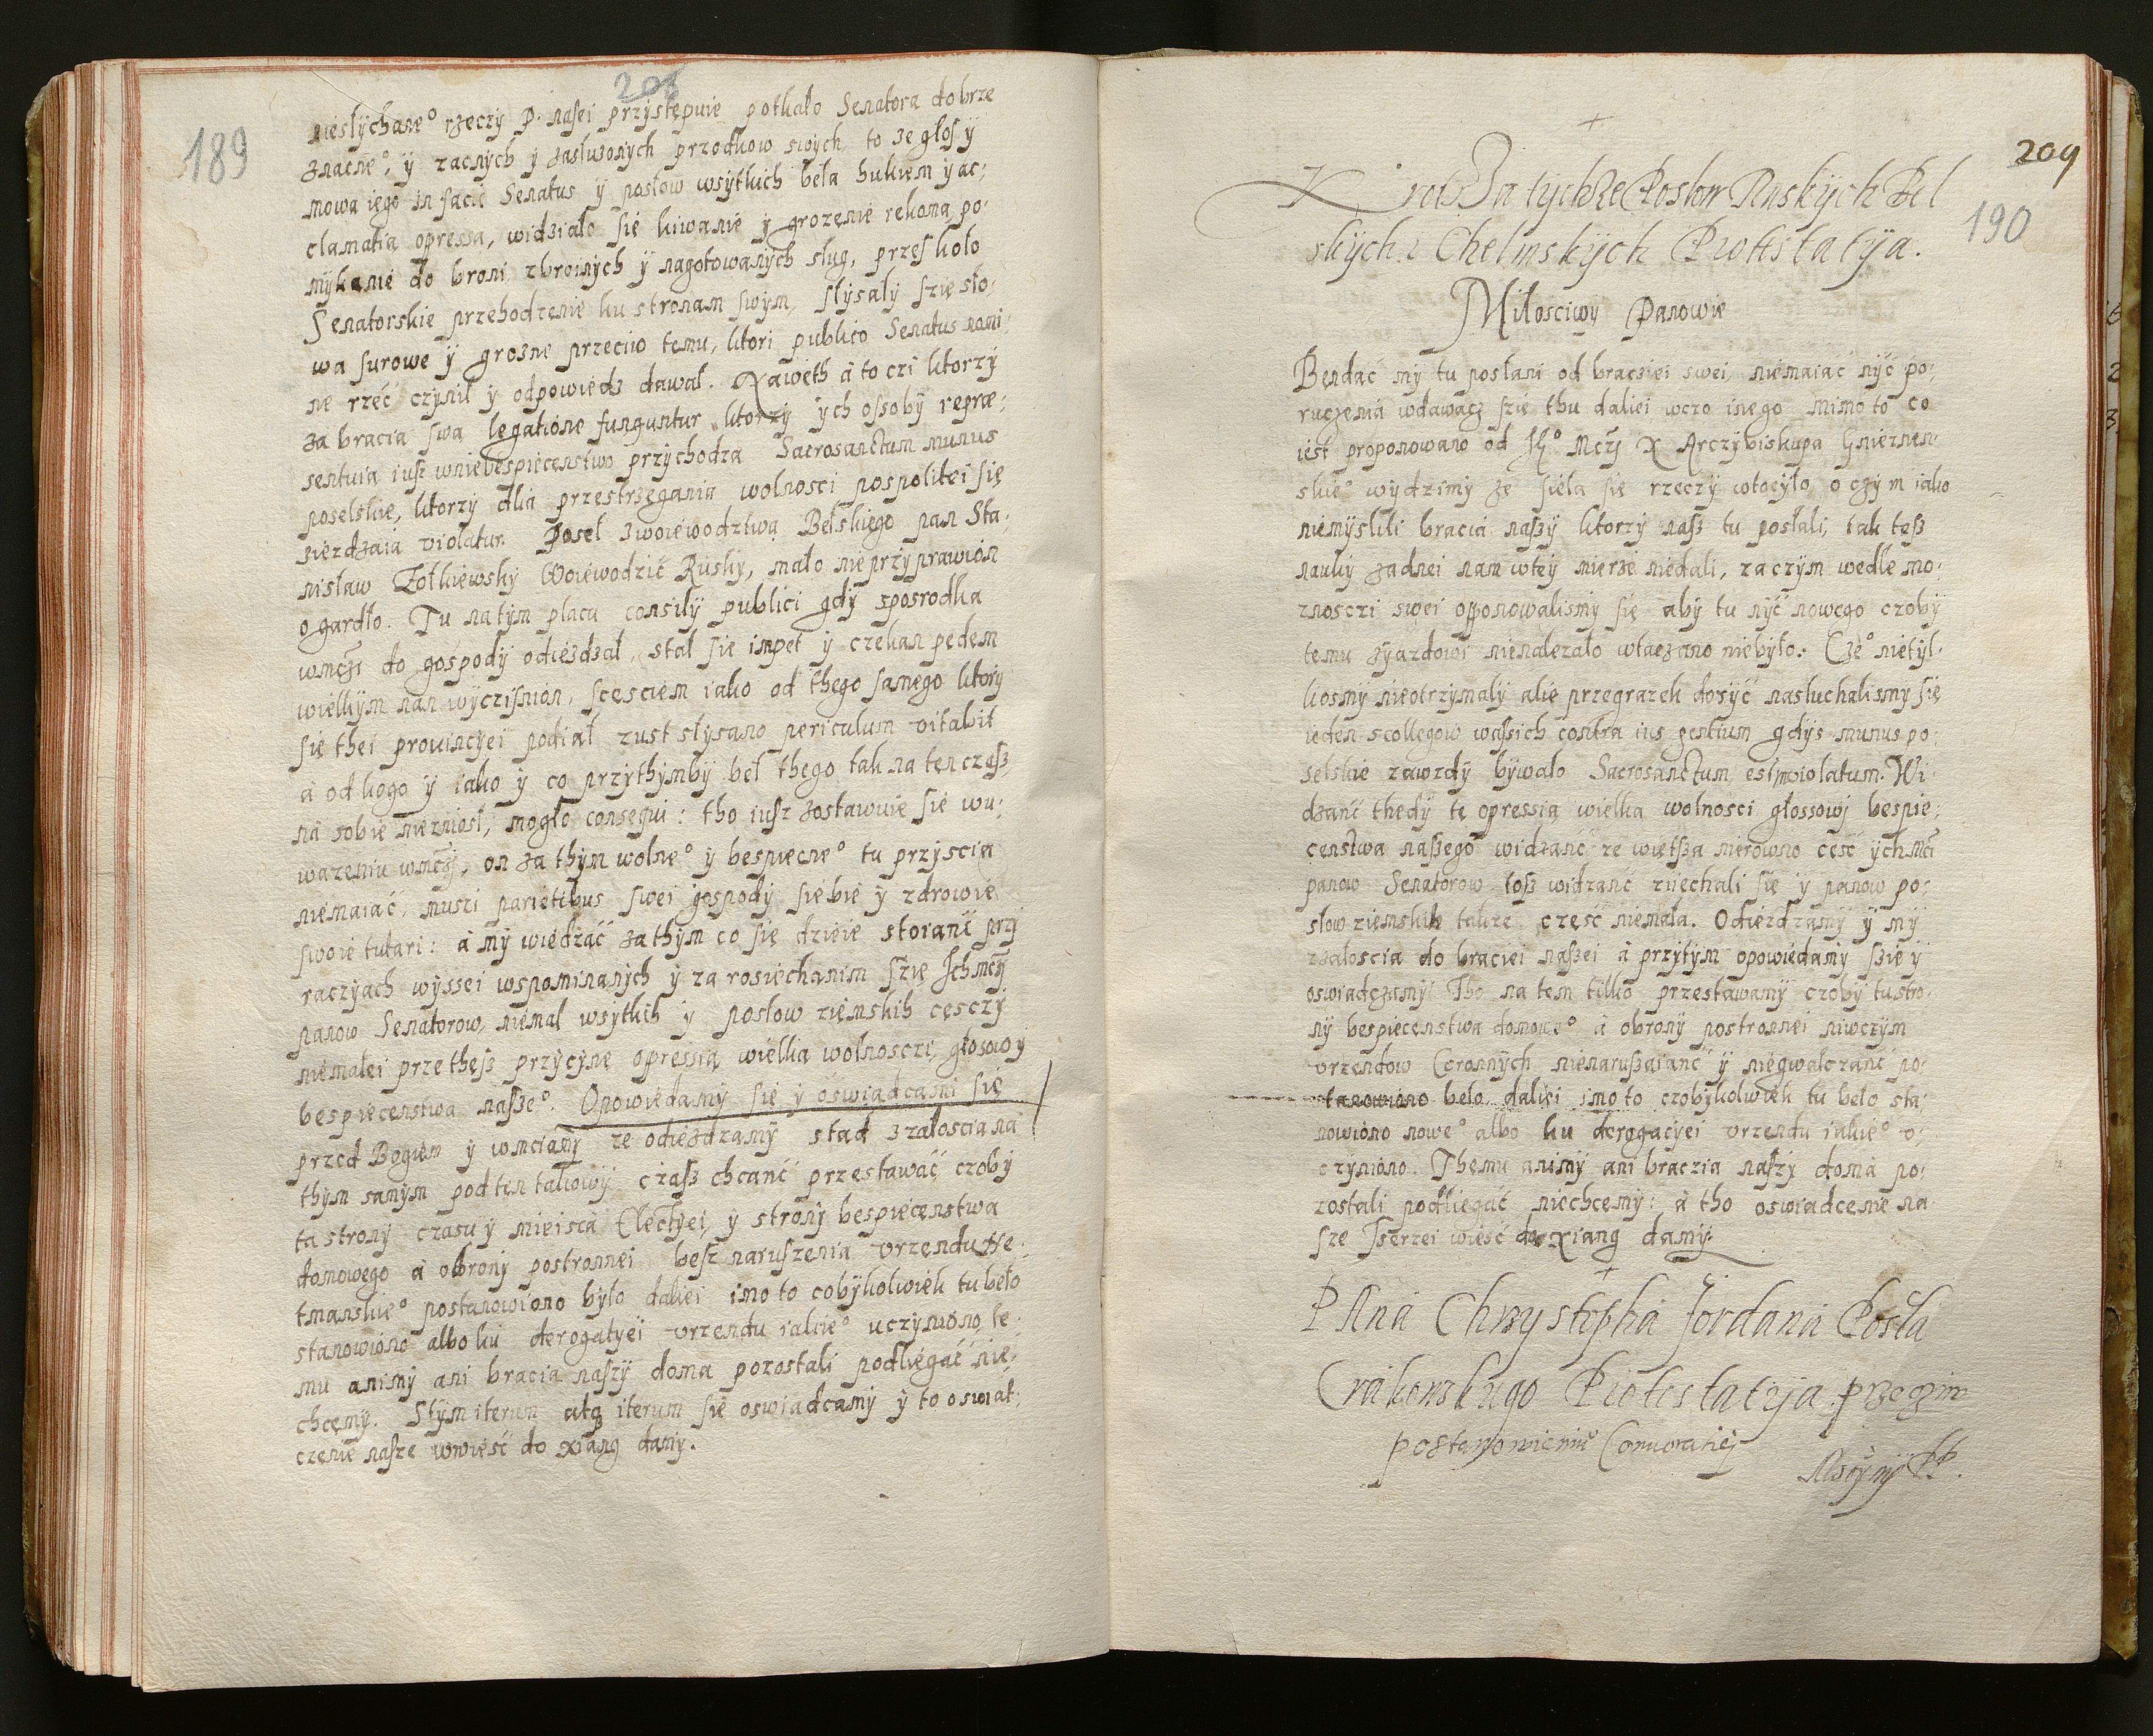 208
189
niesłychane° rzeczÿ P. nasei przÿstępuie potkało Senatora dobrze
znacne°, ÿ zacnÿch ÿ zasłuzonÿch przodkow swoÿch, to ze głos ÿ
mowa iego in facie Senatus ÿ posłow wsÿtkich beła hukiem ÿ ac:
clamatia opressa, widziało się kiwanie ÿ grozenie rekoma, po:
mÿkanie do broni, zbroinÿch ÿ nagotowanÿch sług, przes koło
Senatorskie przehodzenie ku stronam swÿm, słÿsałÿ szię sło:
wa surowe ÿ grozne przeciwo temu, ktori publico Senatus nomi:
ne rzeć czÿnił ÿ odpowiedz dawał. Naweth à to czi ktorzÿ
za bracia swa legatione funguntur ktorzÿ ÿch ossobÿ repræ:
sentuia iusz wniebespiecenstwo przÿchodza Sacrosanctum munus
poselskie, ktorzÿ dlia przestrzegania wolnosci pospolitei się
ziezdzaia violatur. Poseł zwoiewodztwa Bełskiego pan Sta:
nisław Zołkiewskÿ Woiewodzić Ruskÿ, mało nie przÿprawion
o gardło. Tu natÿm placu consilÿ publici gdÿ sposrodka
wmczi do gospodÿ odiezdzał, stał sie impet ÿ czekan pędem
wielkÿm nan wÿczisnion, scęsciem iako od thego samego ktorÿ
się thei prowincÿei podiał zust słÿsano periculum vitabit
à od kogo ÿ iako ÿ co przÿthÿmbÿ beł thego tak na ten czasz
na sobie niezniosł, mogło consequi: tho iusz zostawuie się wu:
wazeniu wmczj, on za thÿm wolne° ÿ bespiecne° tu przÿscia
niemaiać, musi parietibus swei gospodÿ siebie ÿ zdrowie
swoie tutari: à mÿ wiedząć zathÿm co się dzieie stoianć prżÿ
raczÿach wÿssei wspominanÿch ÿ za rosiechanim szię Ichmczj
panow Senatorow, niemal wsÿtkich ÿ posłow ziemskih cęsczÿ
niemałei prze thęsz przÿcÿnę opressią wielkia wolnosczi, głosowoÿ
bespiecenstwa nasze°. Opowiedamÿ się ÿ oswiadcami się
przed Bogiem ÿ wmciamÿ ze odiezdzamÿ stad z załoscia na
thÿm samÿm pod ten takowÿ czasz chcanć przestawać czobÿ
ta stronÿ czasu ÿ mieisca Electÿei, ÿ stronÿ bespiecenstwa
domowego à obronÿ postronnei besz naruszenia vrzendu He:
tmanskie° postanowiono bÿło daliei imo to cobÿkolwiek tu beło
stanowiono albo ku derogatÿei vrzendu iakie° uczÿniono, te:
mu animÿ ani bracia naszÿ doma pozostali podliegać nie:
chcęmÿ. Stÿm iterum atq iterum się oswiadcamÿ ÿ to oswiat:
czenie nasze wniesć do xiang damÿ.
209
190
Krot Za tÿchze Posłow Ruskÿch Bel
skÿch. ẏ Chelmskÿch Protistatÿa.
Miłosciwy Panowie
Bendąć mÿ tu posłani od braciei swei, niemaiać nÿć po:
ruczenia wdawacz szię thu daliei wczo inego Mimo to co
iest proponowano od Je° Mczj X Arczÿbiskupa Gnieznen:
skie° wÿdzimÿ ze sieła się rzeczÿ wtocÿło o czÿm iako
niemÿslili bracia naszÿ ktorzÿ nasz tu posłali, tak tesz
naukÿ zadnei nam wteÿ mierze niedali, zaczÿm wedle mo:
znosczi swei opponowalismÿ się abÿ tu nÿć nowego czobÿ
temu zÿazdowi nienalezało wtaczano niebÿło. Cze° nietÿl:
kosmÿ nieotrzÿmalÿ alie przegrazek dosÿć nasłuchalismÿ się
ieden scollegow wassich contra ius gentium gdÿs munus po:
selskie zawzdÿ bÿwało Sacrosanctum est violatum. Wi:
dzanć thedÿ tę opressią wielka wolnosci głossowj bespie:
censtwa naszego widzanć ze więtsza nierowno cęsć ÿchmći
panow Senatorow tosz widzanć ziechali się ÿ panow po:
słow ziemskih takze częsć niemała. Odiezdzamÿ ÿ mÿ
zzałoscia do braciei naszei à przÿtÿm opowiedamÿ szię ÿ
oswiadczamÿ Tho na tem tilko przestawamÿ czobÿ tu stro:
nÿ bespiecenstwa domowe° à obronÿ postronnei niwczÿm
vrzendow Coronnÿch nienaruszaianć ÿ niegwałczanć po:
stanowiono beło daliei imo to czobÿkolwiek tu beło sta:
nowiono nowe° albo ku derogacÿei vrzendu iakie° v:
czÿniono. Themu animÿ ani braczia naszÿ doma po:
zostali podliegać niechcęmÿ: à tho oswiadcenie na:
sze Tserzei wiesć do xiang damÿ.
PAna Chrzystopha Jordana Posła
Crakowskiego Protestatÿa przeczim
postanowieniu Conuocatiej